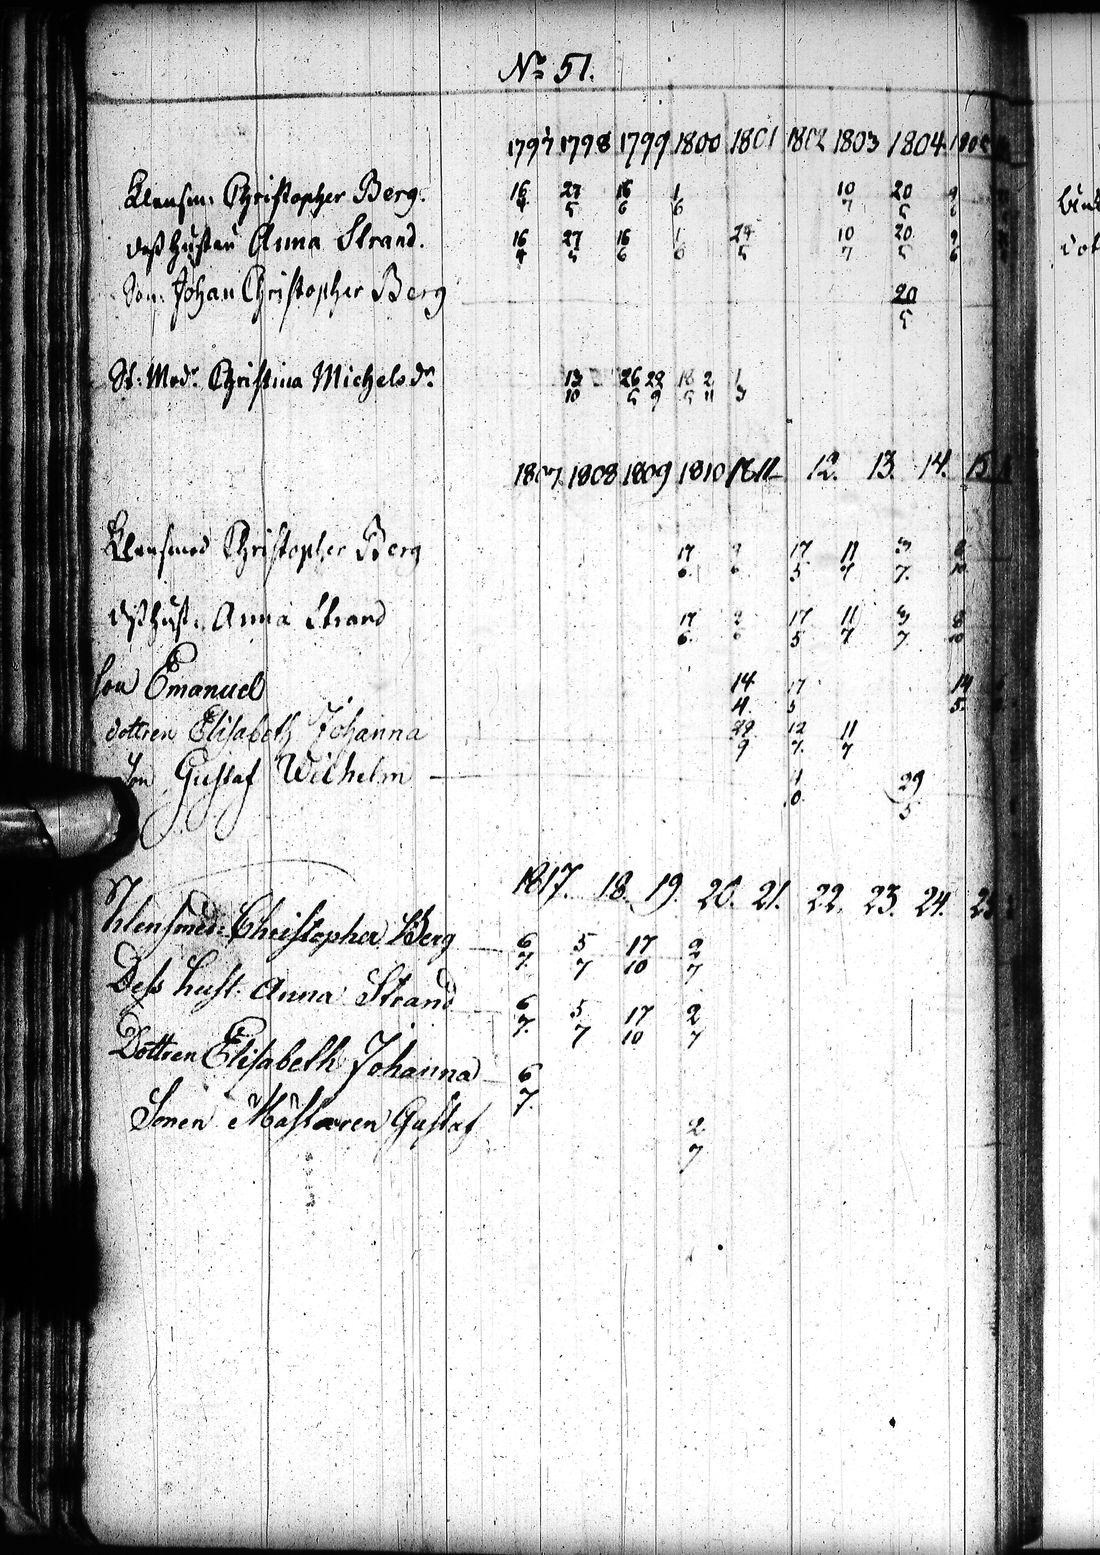 No 51.
1797 1798 1799 1800 1801 1802 1803 1804 1805
Klensm: Christopher Berg. 16/4 27/5 16/6 1/6 10/7 20/5 9/6
Dess hustru Anna Strand. 16/4 27/5 16/6 1/6 24/5 10/7 20/5 9/6
Son: Johan Christopher Berg 20/5
St: Mod:r Christina Michelsdr 13/10 26/5 29/9 18/5 2/11 1/3
1807. 1808 1809 1810 1811 12. 13. 14. 15
Klensmed Christopher Berg 17/6 2/6 17/5 11/7 3/7 8/10
Dess hust: Anna Strand 17/6 2/6 17/5 11/7 3/7 8/10
Son Emanuel 14/4 17/5 14/5
dottren Elisabeth Johanna 29/9 12/7 11/7
Son Gustaf Wilhelm 29/5
1817. 18. 19. 20. 21. 22. 23. 24. 25
Klensmed: Christopher Berg 6/7 5/7 17/10 2/7
Dess hust: Anna Strand 6/7 5/7 17/10 2/7
Dottren Elisabeth Johanna 6/7
Sonen Mästaren Gustaf 2/7